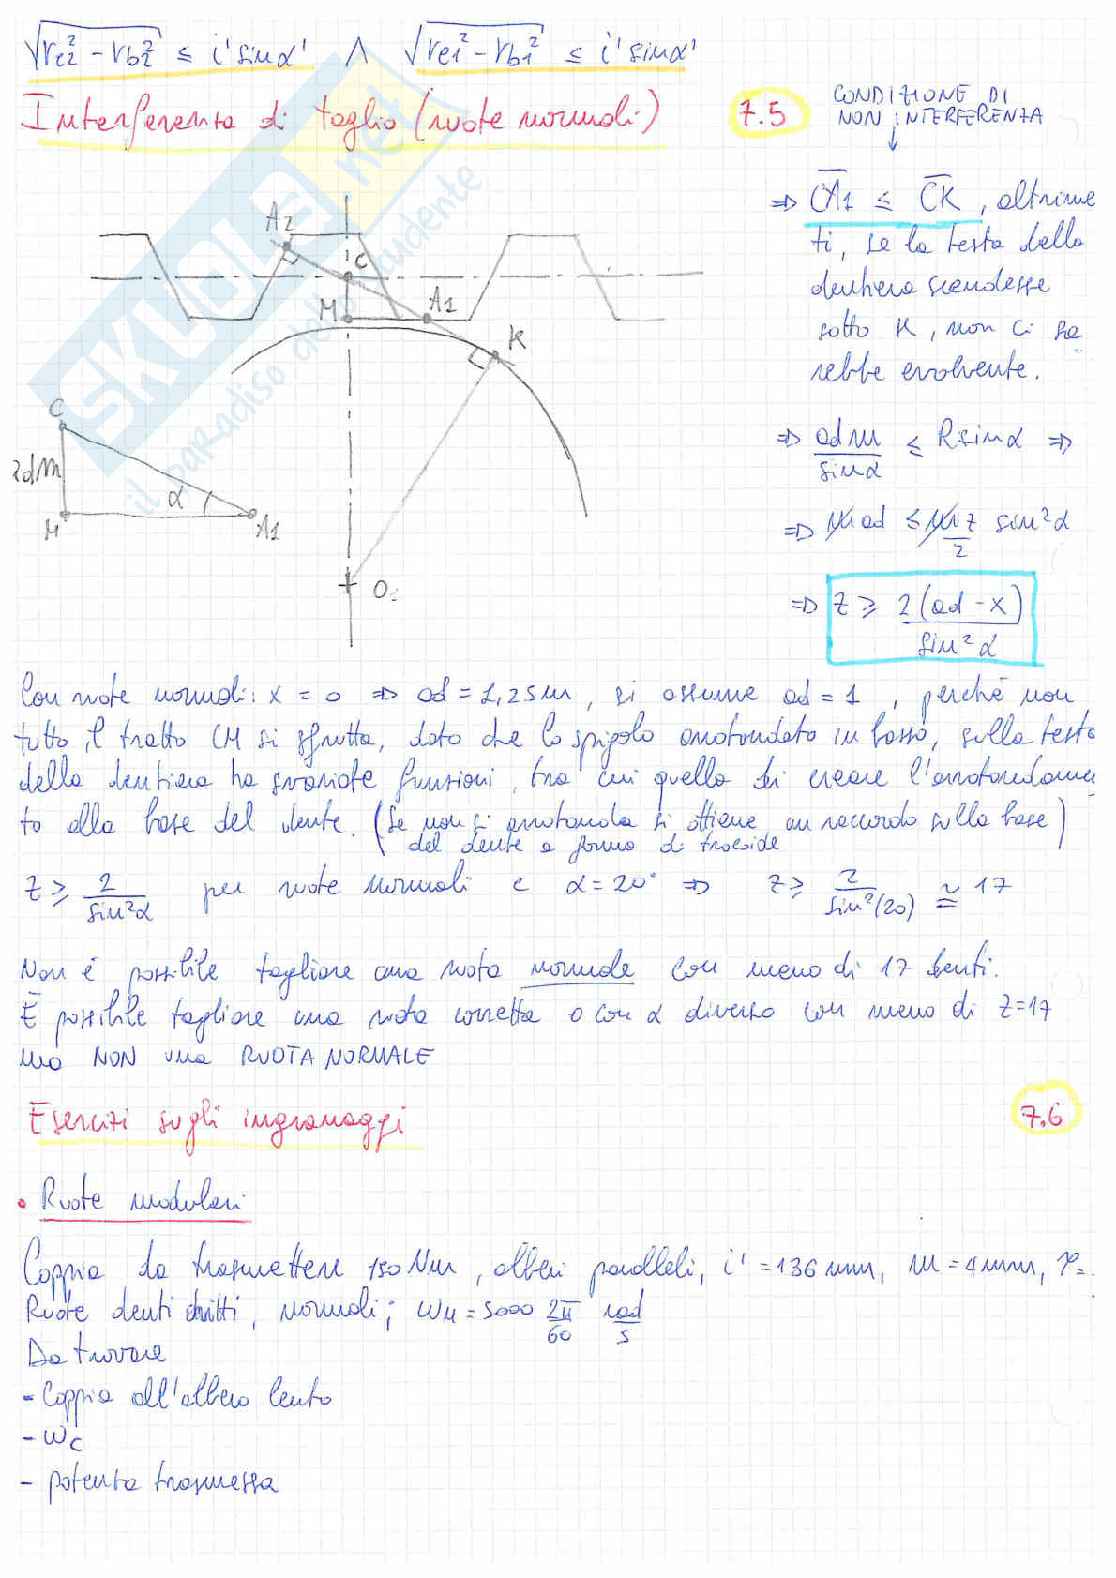 √(re2² - rb2²) ≤ i' sinα' ∧ √(re1² - rb1²) ≤ i' sinα'
Interferenza di taglio (ruote normali) 7.5
CONDIZIONE DI
NON INTERFERENZA
⇒ CA1 ≤ CK, altrime
ti, se la testa della
dentiera scendesse
sotto K, non ci sa
rebbe evolvente.
A2
C
M
A1
K
O1
C
adm
α
M
A1
⇒ adm/sinα ≤ R sinα ⇒
⇒ m ad ≤ m z/2 sin²α
⇒ z ≥ 2(ad - x)/sin²α
Con ruote normali: x = 0 ⇒ ad = 1,25m, si assume ad = 1, perché non
tutto il tratto CM si sfrutta, dato che lo spigolo arrotondato in basso, sulla testa
della dentiera ha svariate funzioni, tra cui quella di creare l'arrotondamen
to alla base del dente. (Se non si arrotonda si ottiene un raccordo sulla base)
del dente a forma di trocoide
z ≥ 2/sin²α per ruote normali e α = 20° ⇒ z ≥ 2/sin²(20) ≃ 17
Non è possibile tagliare una ruota normale con meno di 17 denti.
È possibile tagliare una ruota corretta o con α diverso con meno di z=17
ma NON una RUOTA NORMALE
Esercizi sugli ingranaggi 7.6
• Ruote modulari
Coppia da trasmettere 150 Nm, alberi paralleli, i' = 136 mm, m = 4 mm,
Ruote denti dritti, normali; = 5000 2π/60 rad/s
Da trovare
- Coppia all'albero lento
- ωc
- potenza trasmessa
SKUOLA.net
il paradiso dello studente